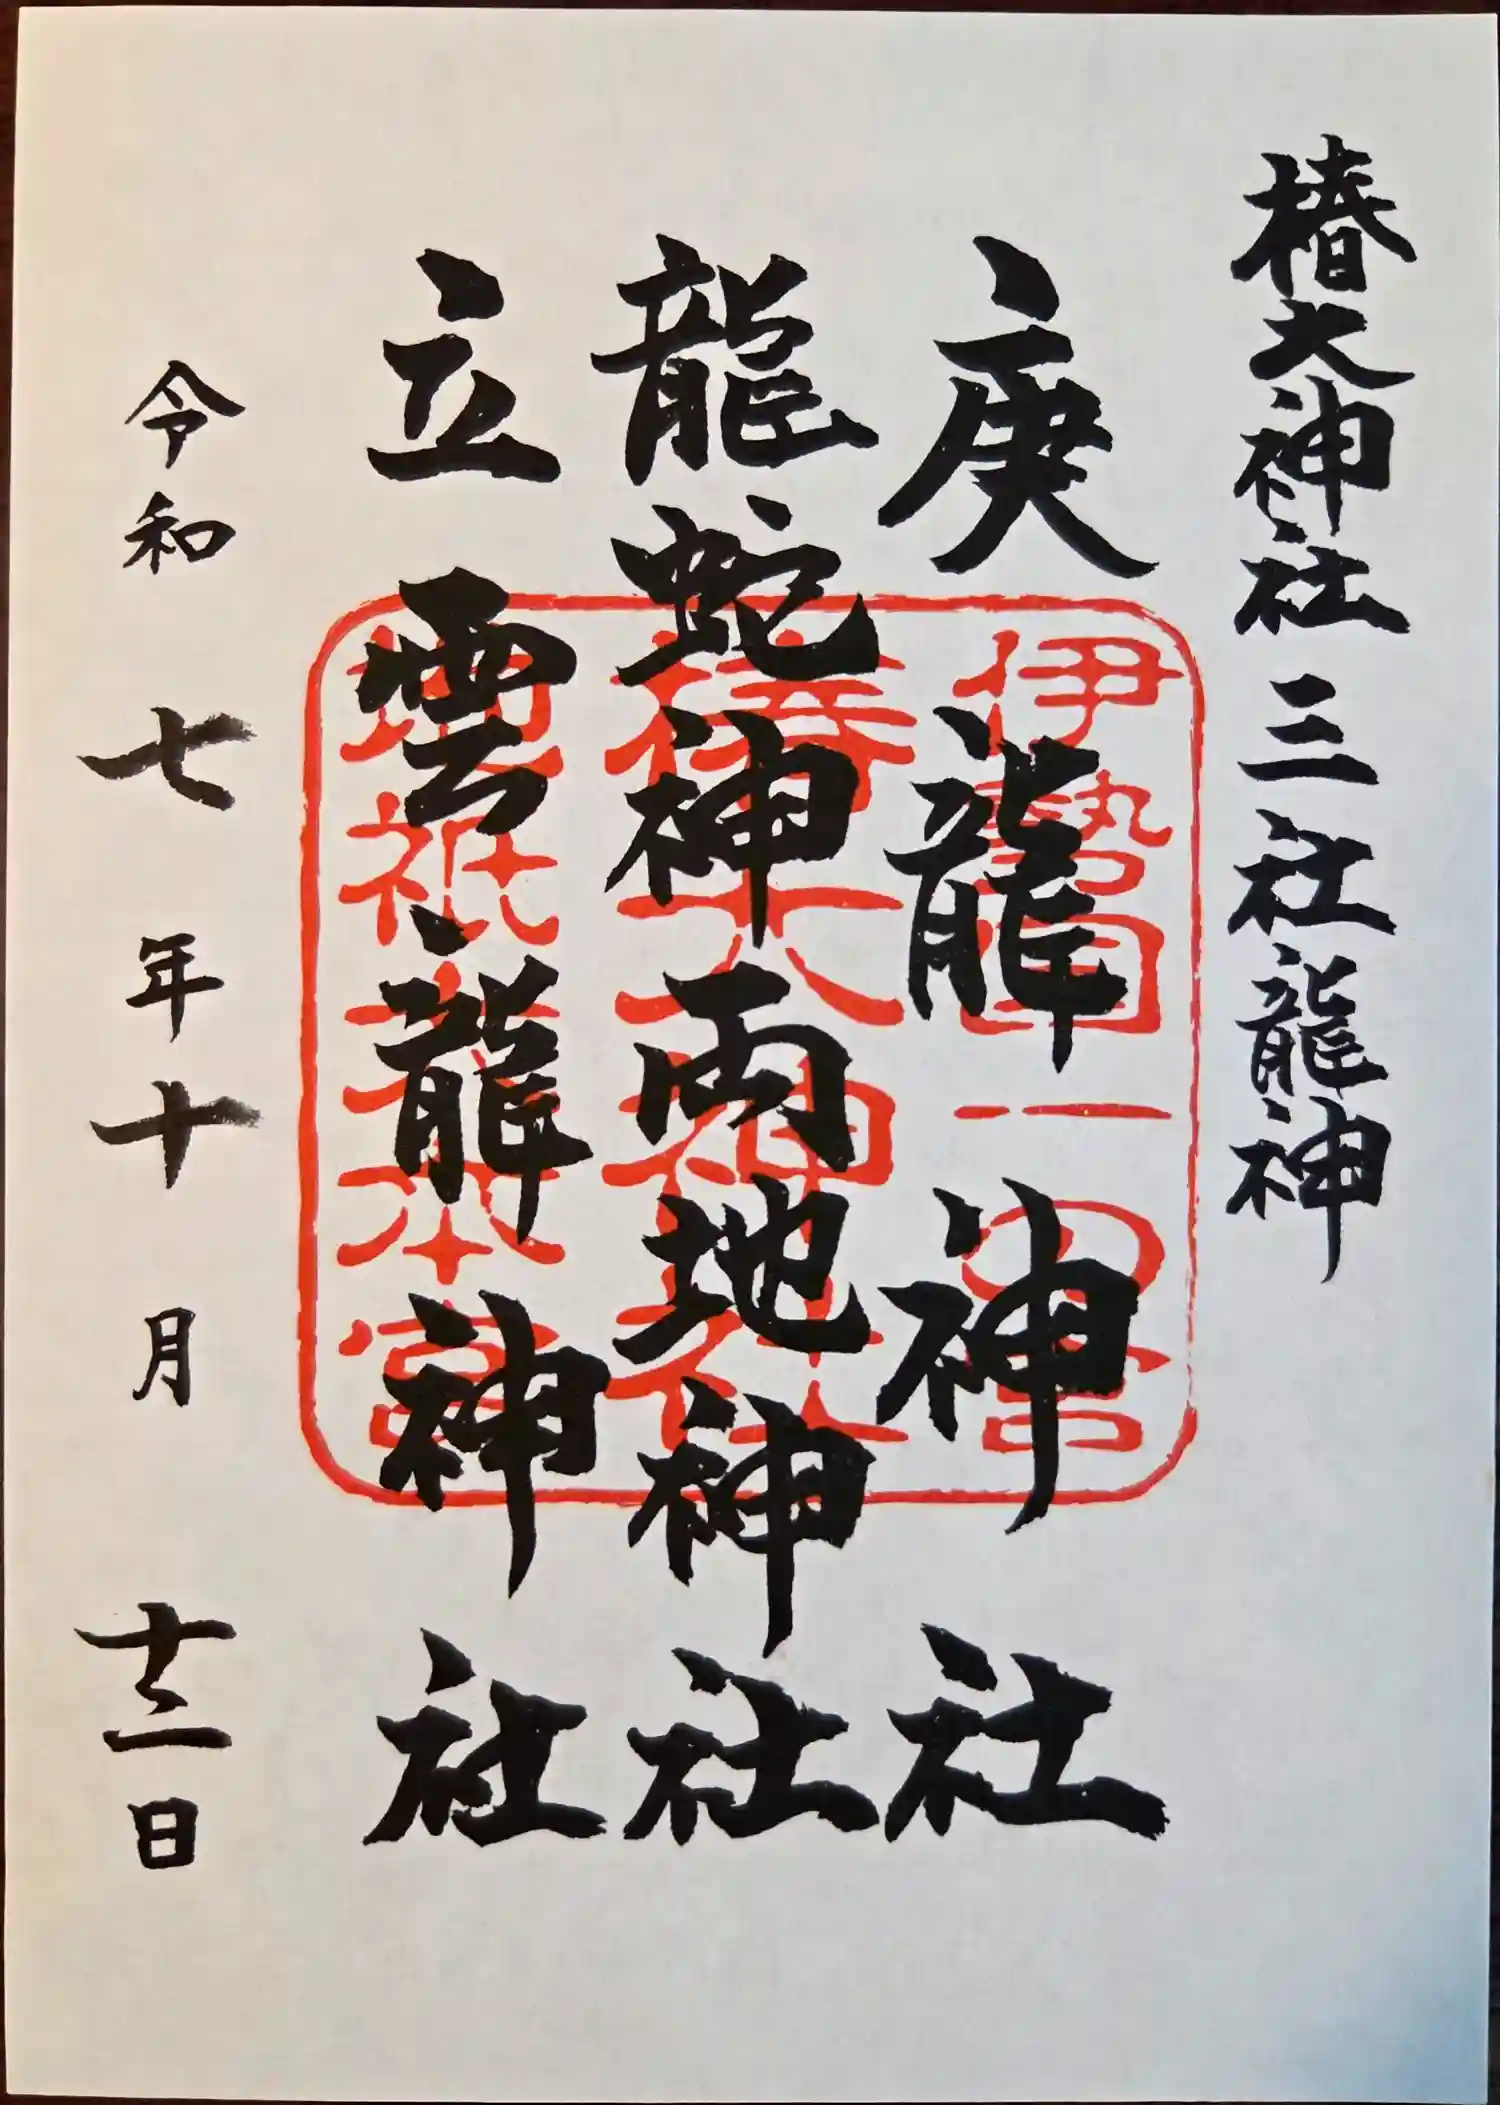 椿大神社 三社龍神
庚龍神社
龍蛇神両地神社
立雲龍神社
令和七年十月十二日
伊勢国一の宮
椿大神社
地祇大本宮